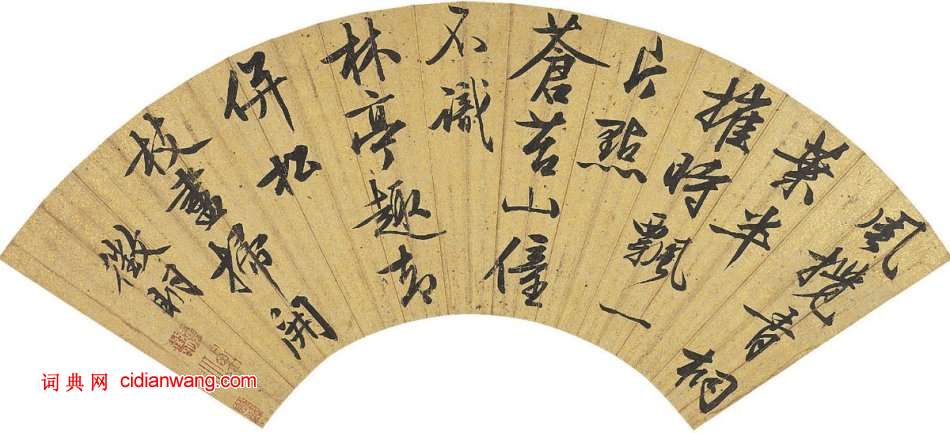 風攪青桐
葉半
摧時飄一
片點
蒼苔山僮
不識
林亭趣却
併松
枝盡掃開
徵明
词典网 cidianwang.com